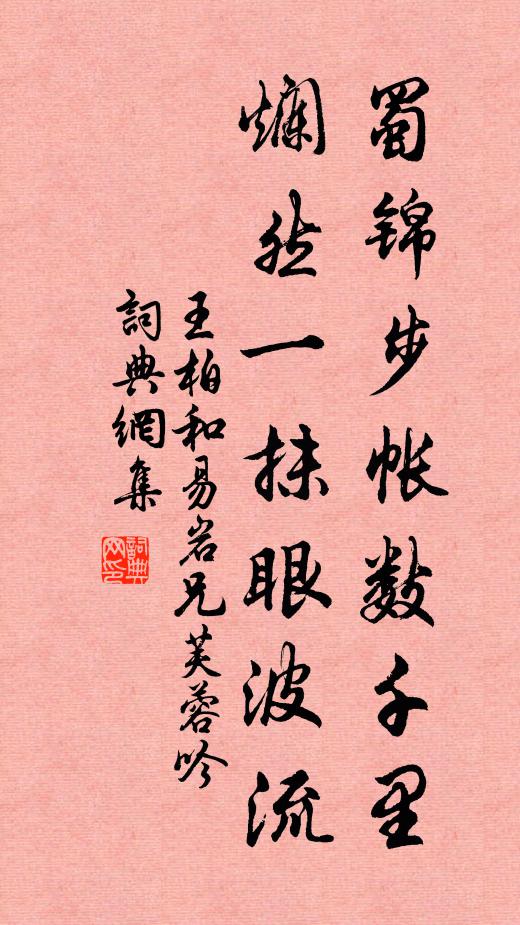 蜀锦步帐数千里
爛然一抹眼波流
王柏和易岩兄芙蓉吟
詞典網集
詞典网印